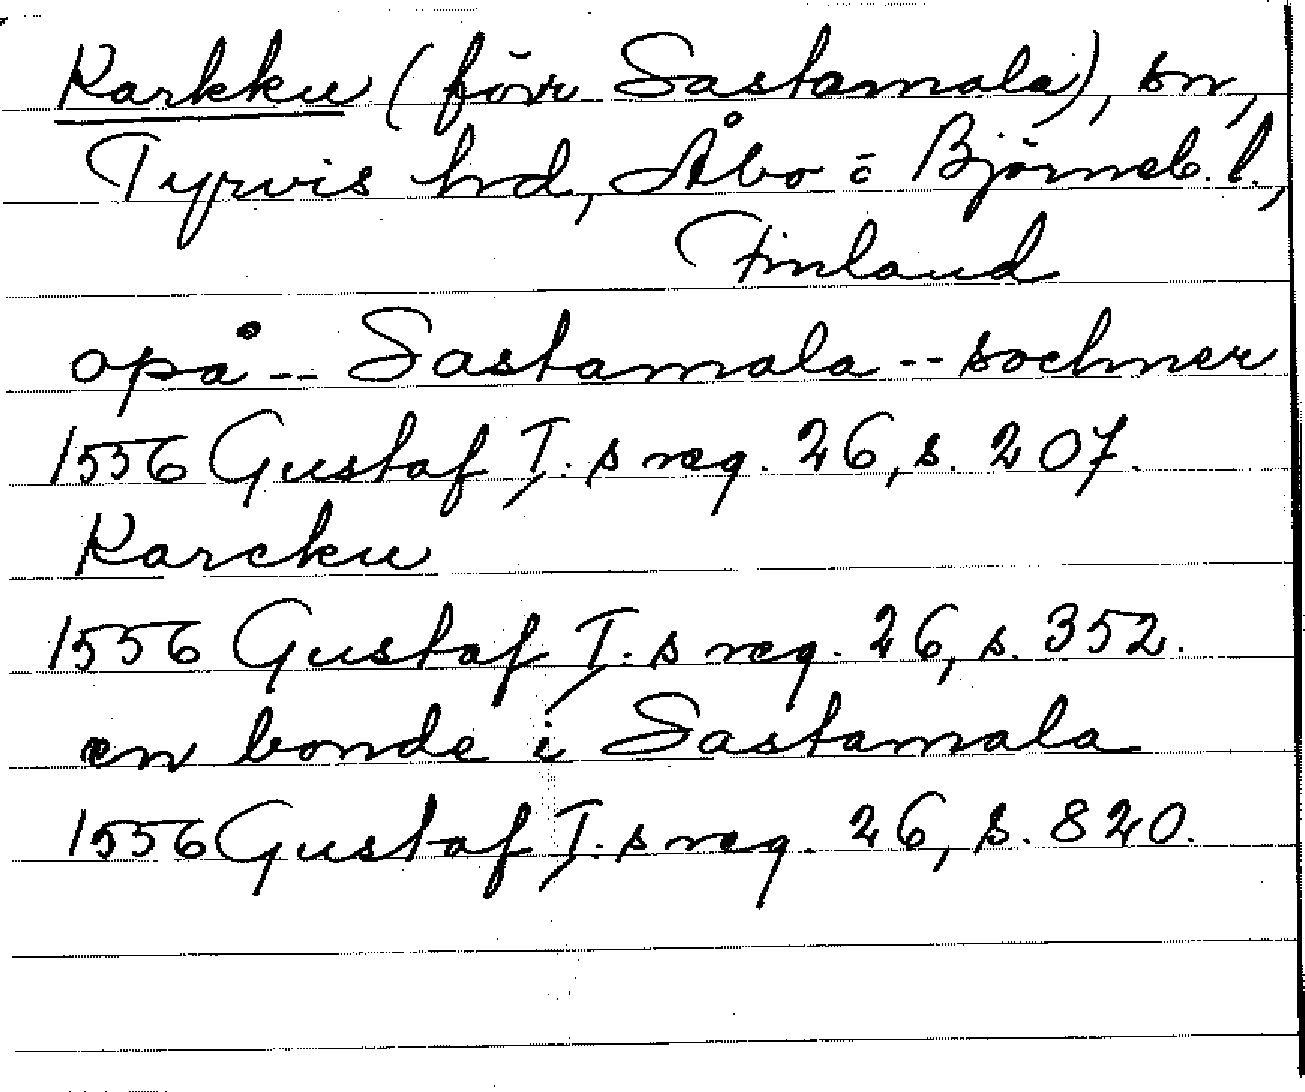 Karkku (förr Sastamala), sn,
Tyrvis hd, Åbo o Björneb. l.,
Finland
opå -- Sastamala -- sochner
1556 Gustaf I:s reg. 26, s. 207.
Karcku
1556 Gustaf I:s reg. 26, s. 352.
en bonde i Sastamala
1556 Gustaf I:s reg. 26, s. 820.